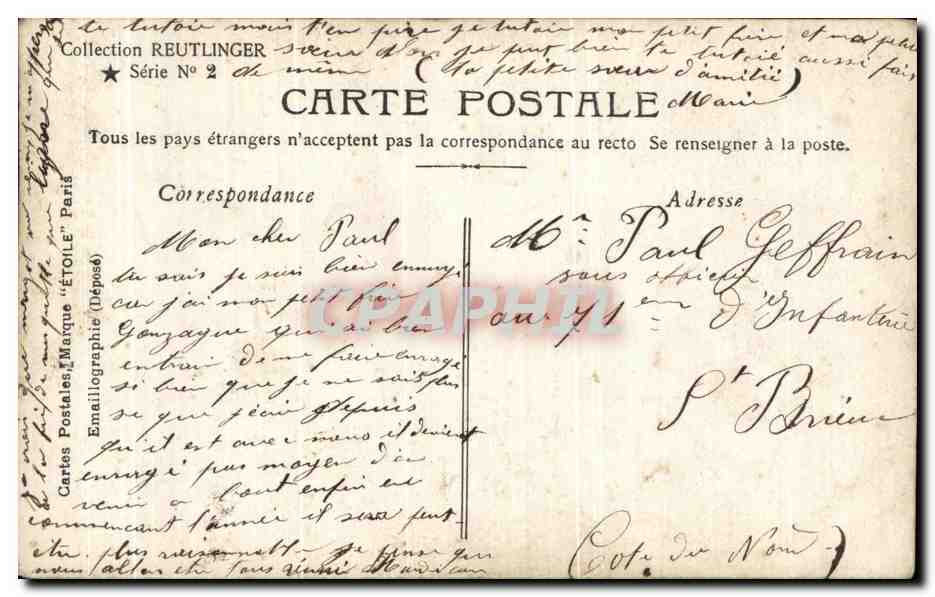 te tutoie mais t'en pire je tutoie mon petit frère et ma petite
Collection REUTLINGER sœur donc je peut bien te tutoié aussi fais
★ Série Nº 2 de même (ta petite sœur d'amitié)
CARTE POSTALE Marie
Tous les pays étrangers n'acceptent pas la correspondance au recto Se renseigner à la poste.
Correspondance
Mon cher Paul
tu sais je suis bien ennuyé
car j'ai mon petit frère
Gonzague qui est bien
entrain de me faire enragé
si bien que je ne sais plus
se que j'écrit depuis
qu'il est avec nous il devient
enragé pas moyen d'en
venir a bout enfin en
commencant l'année il sera peut
etre plus raisonnable je pense que
nous allon etre tous réuni
Adresse
Mr Paul Geffrain
sous officier
au 71 eme d'Infanterie
St Brieuc
(Cote du Nord)
Cartes Postales, Marque "ÉTOILE" Paris
Emaillographie (Déposé)